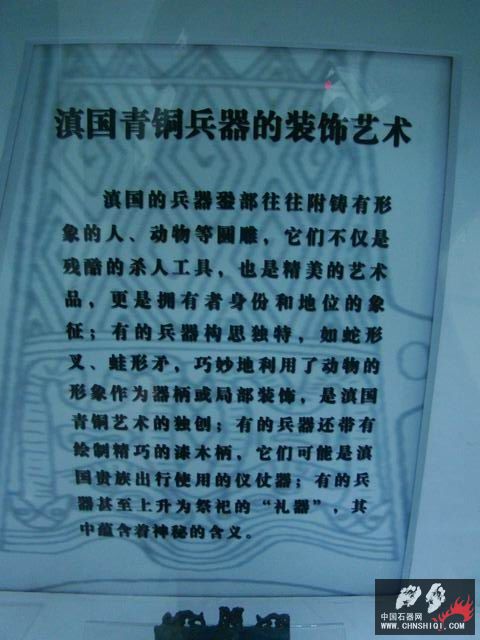 滇国青铜兵器的装饰艺术
滇国的兵器銎部往往附铸有形
象的人、动物等圆雕，它们不仅是
残酷的杀人工具，也是精美的艺术
品，更是拥有者身份和地位的象
征；有的兵器构思独特，如蛇形
叉、蛙形矛，巧妙地利用了动物的
形象作为器柄或局部装饰，是滇国
青铜艺术的独创；有的兵器还带有
绘制精巧的漆木柄，它们可能是滇
国贵族出行使用的仪仗器；有的兵
器甚至上升为祭祀的“礼器”，其
中蕴含着神秘的含义。
中国石器网
WWW.CHNSHIQI.COM